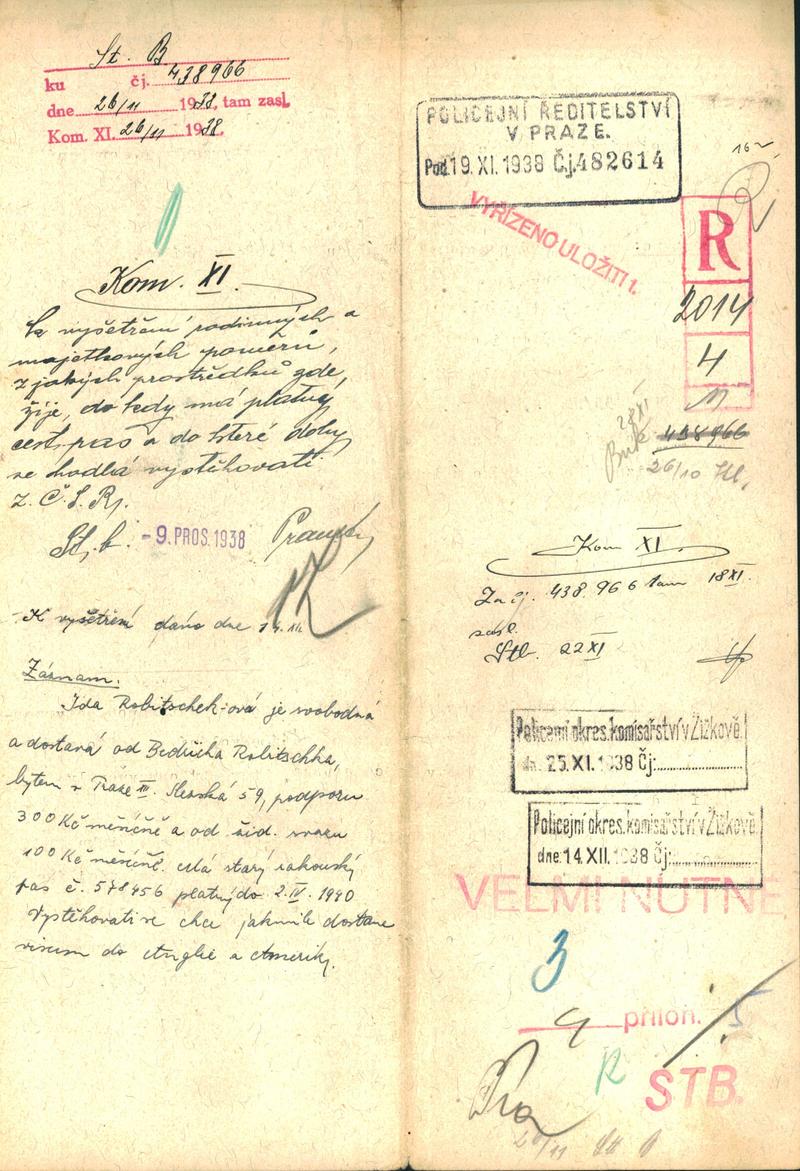 St. B
ku čj. 438966
dne 26/11 1938, tam zasl.
Kom. XI. 26/11 1938.
Kom. XI.
K vyšetření rodinných a
majetkových poměrů,
z jakých prostředků zde
žije, do kdy má platný
cest. pas a do které doby
se hodlá vystěhovati
z Č.S.R.
St. b. -9. PROS. 1938
K vyšetření dáno dne
Záznam.
Ida Robitschek-ová je svobodná
a dostává od Bedřicha Robitschka,
bytem v Praze 59, podporu
300 Kč měsíčně a od žid. svazu
100 Kč měsíčně. Má starý rakouský
pas č. 578456 platný do 2.IV. 1940
Vystěhovati se chce jakmile dostane
visum do Anglie a Ameriky.
POLICEJNÍ ŘEDITELSTVÍ
V PRAZE.
Pod. 19. XI. 1938 Čj. 482614
VYŘÍZENO ULOŽITI 1.
R
2014
4
11
28/XI
438966
26/10
Kom XI.
Za čj. 438.966 tam 18XI.
zasl.
Stb. 22XI
Policejní okres. komisařství v Žižkově.
dne 25. XI. 1938 Čj:
Policejní okres. komisařství v Žižkově.
dne: 14. XII. 1938 Čj:
VELMI NUTNÉ
3
4 příloh. 5
R
STB.